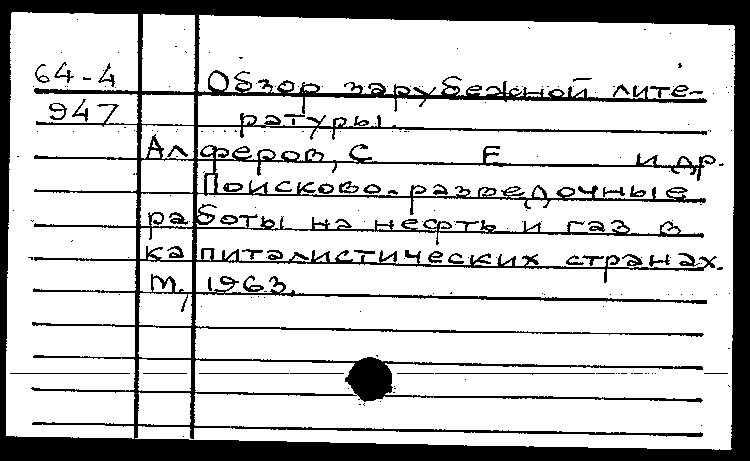 64-4 Обзор зарубежной лите-
947 ратуры.
Алферов, С Е и др.
Поисково-разведочные
работы на нефть и газ в
капиталистических странах.
М., 1963.